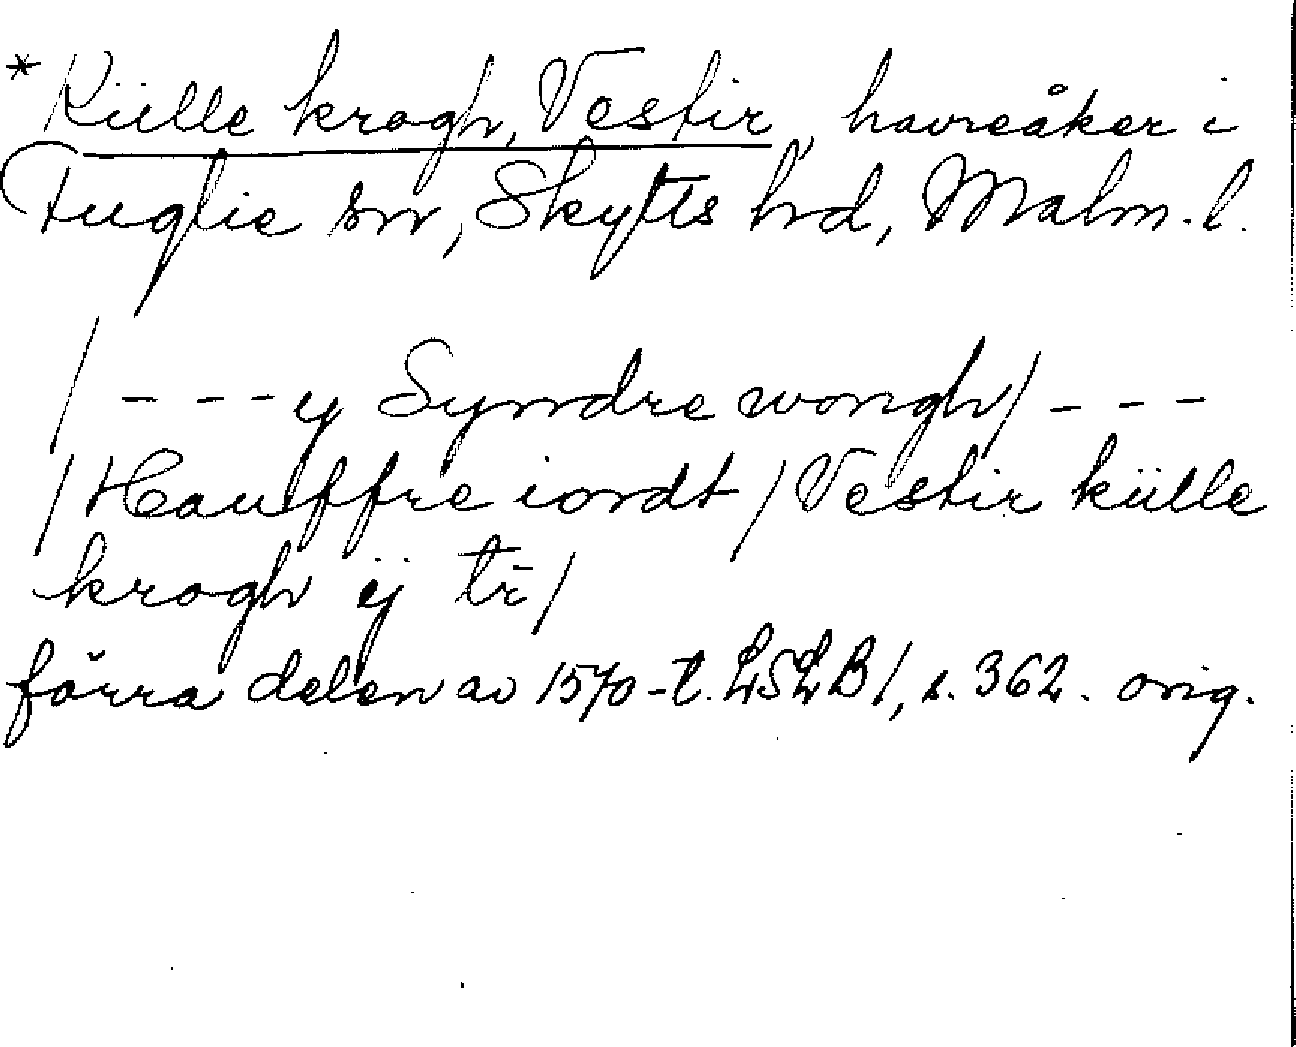 *Külle krogh, Vestir, havreåker i
Fuglie sn, Skytts hd, Malm.l.
/ - - - y Syndre wongh/ - - -
/Hauffre iordt/Vestir külle
krogh ÿ tr̄/
förra delen av 1570-t. LSLB1, s. 362. orig.